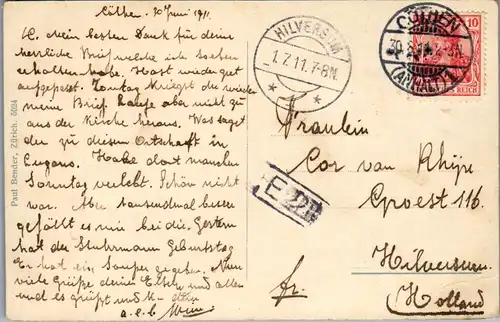 Cöthen. 30 Juni 1911.
L. Mein besten Dank für deine
herrliche Brief welche ich soeben
erhalten habe. Hast wieder gut
aufgepasst. Sonntag kriegst du wieder
meine Brief. Laufe aber nicht zu
aus der Kirche heraus. Was sagst
du zu diesem Ortschaft in
Lugano. Habe dort manchen
Sonntag verlebt. Schön nicht
war. Aber tausendmal besser
gefällt es mir bei die. Gestern
hat der Stuhrmann Geburtstag
Er hat ein Souper gegeben. Nun
viele Grüße deine Eltern und allen
und es grüßt und k-
a.e.b.
Paul Bender, Zürich. 5024
HILVERSUM
1.7.11.7-8N.
CÖTHEN
30.
2-3N.
(ANHALT) 1
10
REICH
Fräulein
Cor van Rhijn
Groest 116.
Hilversum
Holland
fr.